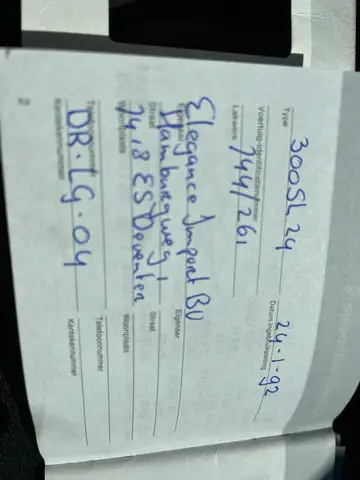 300SL 24 24-1-92
Type Datum ingebruikneming
Voertuig-identificatienummer
744/261
Lakwerk
Elegance Import BV
Eigenaar Eigenaar
Hamburgweg 1
Straat Straat
7418 ES Deventer
Woonplaats Woonplaats
Telefoonnummer Telefoonnummer
DR-LG-04
Kentekennummer Kentekennummer
2